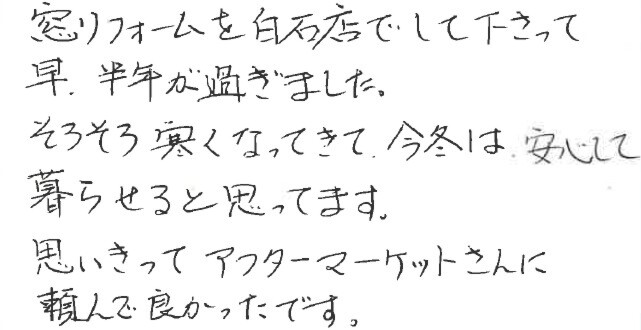 窓リフォームを白石店でして下さって
早、半年が過ぎました。
そろそろ寒くなってきて、今冬は、安心して
暮らせると思ってます。
思いきってアフターマーケットさんに
頼んで良かったです。